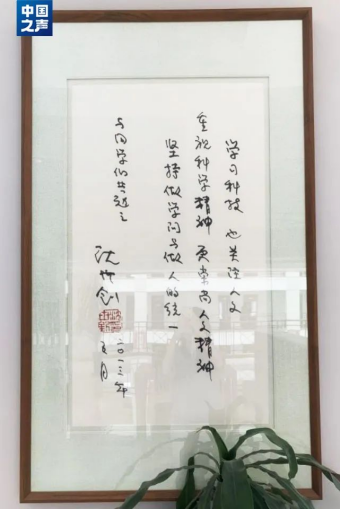 中国
之声
学习科技 也关注人文
重视科学精神 更崇尚人文精神
坚持做学问与做人的统一
与同学们共勉之
沈
二〇一三年
月